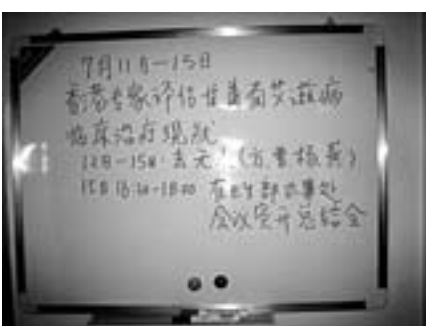 7月11日-15日
香港专家评估 有艾滋病
临床治疗现状
12日-15日 去元
15日 16:30-18:00 在卫生部办事处
会议室开总结会